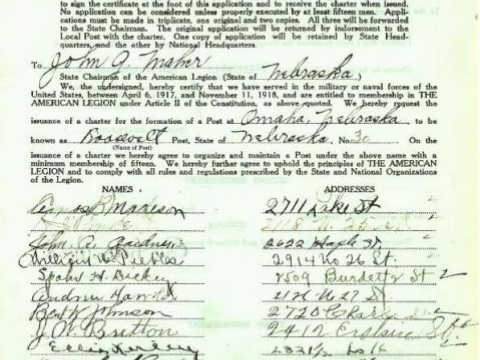 to sign the certificate at the foot of this application and to receive the charter when issued.
No application can be considered unless properly executed by at least fifteen men. Appli-
cations must be made in triplicate, one original and two copies. All three will be forwarded
to the State Chairman. The original application will be returned by indorsement to the
Local Post with charter. One copy of application will be retained by State Head-
quarters, and the other by National Headquarters.
To John G.
State Chairman of the American Legion (State of Nebraska)
We, the undersigned, hereby certify that we have served in the military or naval forces of the
United States, between April 6, 1917, and November 11, 1918, and are entitled to membership in THE
AMERICAN LEGION under Article II of the Constitution, as above quoted. We hereby request
the issuance of a charter for the formation of a Post at Omaha, Nebraska to be
known as Roosevelt Post, State of Nebraska No. 30 On the
(Name of Post)
issuance of a charter we hereby agree to organize and maintain a Post under the above name with a
minimum membership of fifteen. We hereby further agree to uphold the principles of THE AMERICAN
LEGION and to comply with all rules and regulations prescribed by the State and National Organizations
of the Legion.
NAMES ADDRESSES
Amos B Madison 2711 Lake St
John A. Gardner 2622 Maple St.
William W. Peebles 2914 No 26 St.
H. Dickey 2509 Burdette St
Andrew Harold 27 St
Bert Johnson 2720
J. W. Britton 2412 St